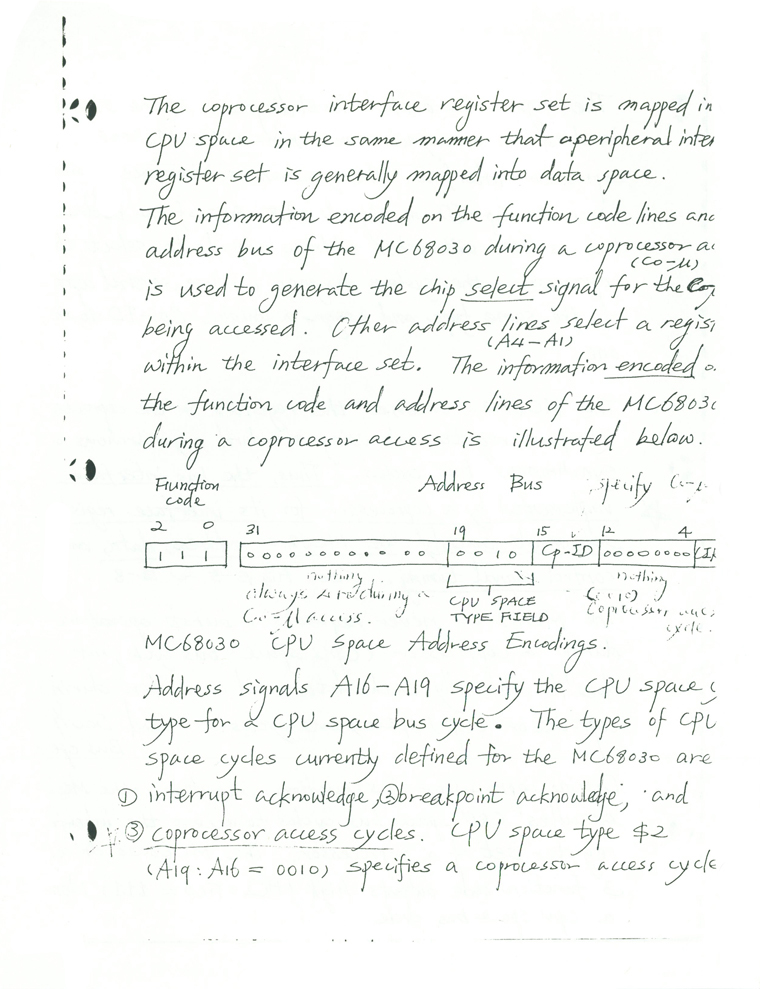 The coprocessor interface register set is mapped in
CPU space in the same manner that a peripheral inter
register set is generally mapped into data space.
The information encoded on the function code lines and
address bus of the MC68030 during a coprocessor ac
(Co-μ)
is used to generate the chip select signal for the Cop
being accessed. Other address lines select a regis
(A4-A1)
within the interface set. The information encoded o
the function code and address lines of the MC68030
during a coprocessor access is illustrated below.
Function Address Bus specify Co-μ
code
2 0 31 19 15 12 4
1 1 1 0 0 0 0 0 0 0 0 0 0 0 0 0 0 1 0 Cp-ID 00000000
nothing nothing
always zero during a CPU SPACE
Co-μ access. TYPE FIELD Coprocessor access
cycle.
MC68030 CPU Space Address Encodings.
Address signals A16-A19 specify the CPU space c
type for a CPU space bus cycle. The types of CPU
space cycles currently defined for the MC68030 are
① interrupt acknowledge, ② breakpoint acknowledge, and
③ coprocessor access cycles. CPU space type $2
(A19 : A16 = 0010) specifies a coprocessor access cycle